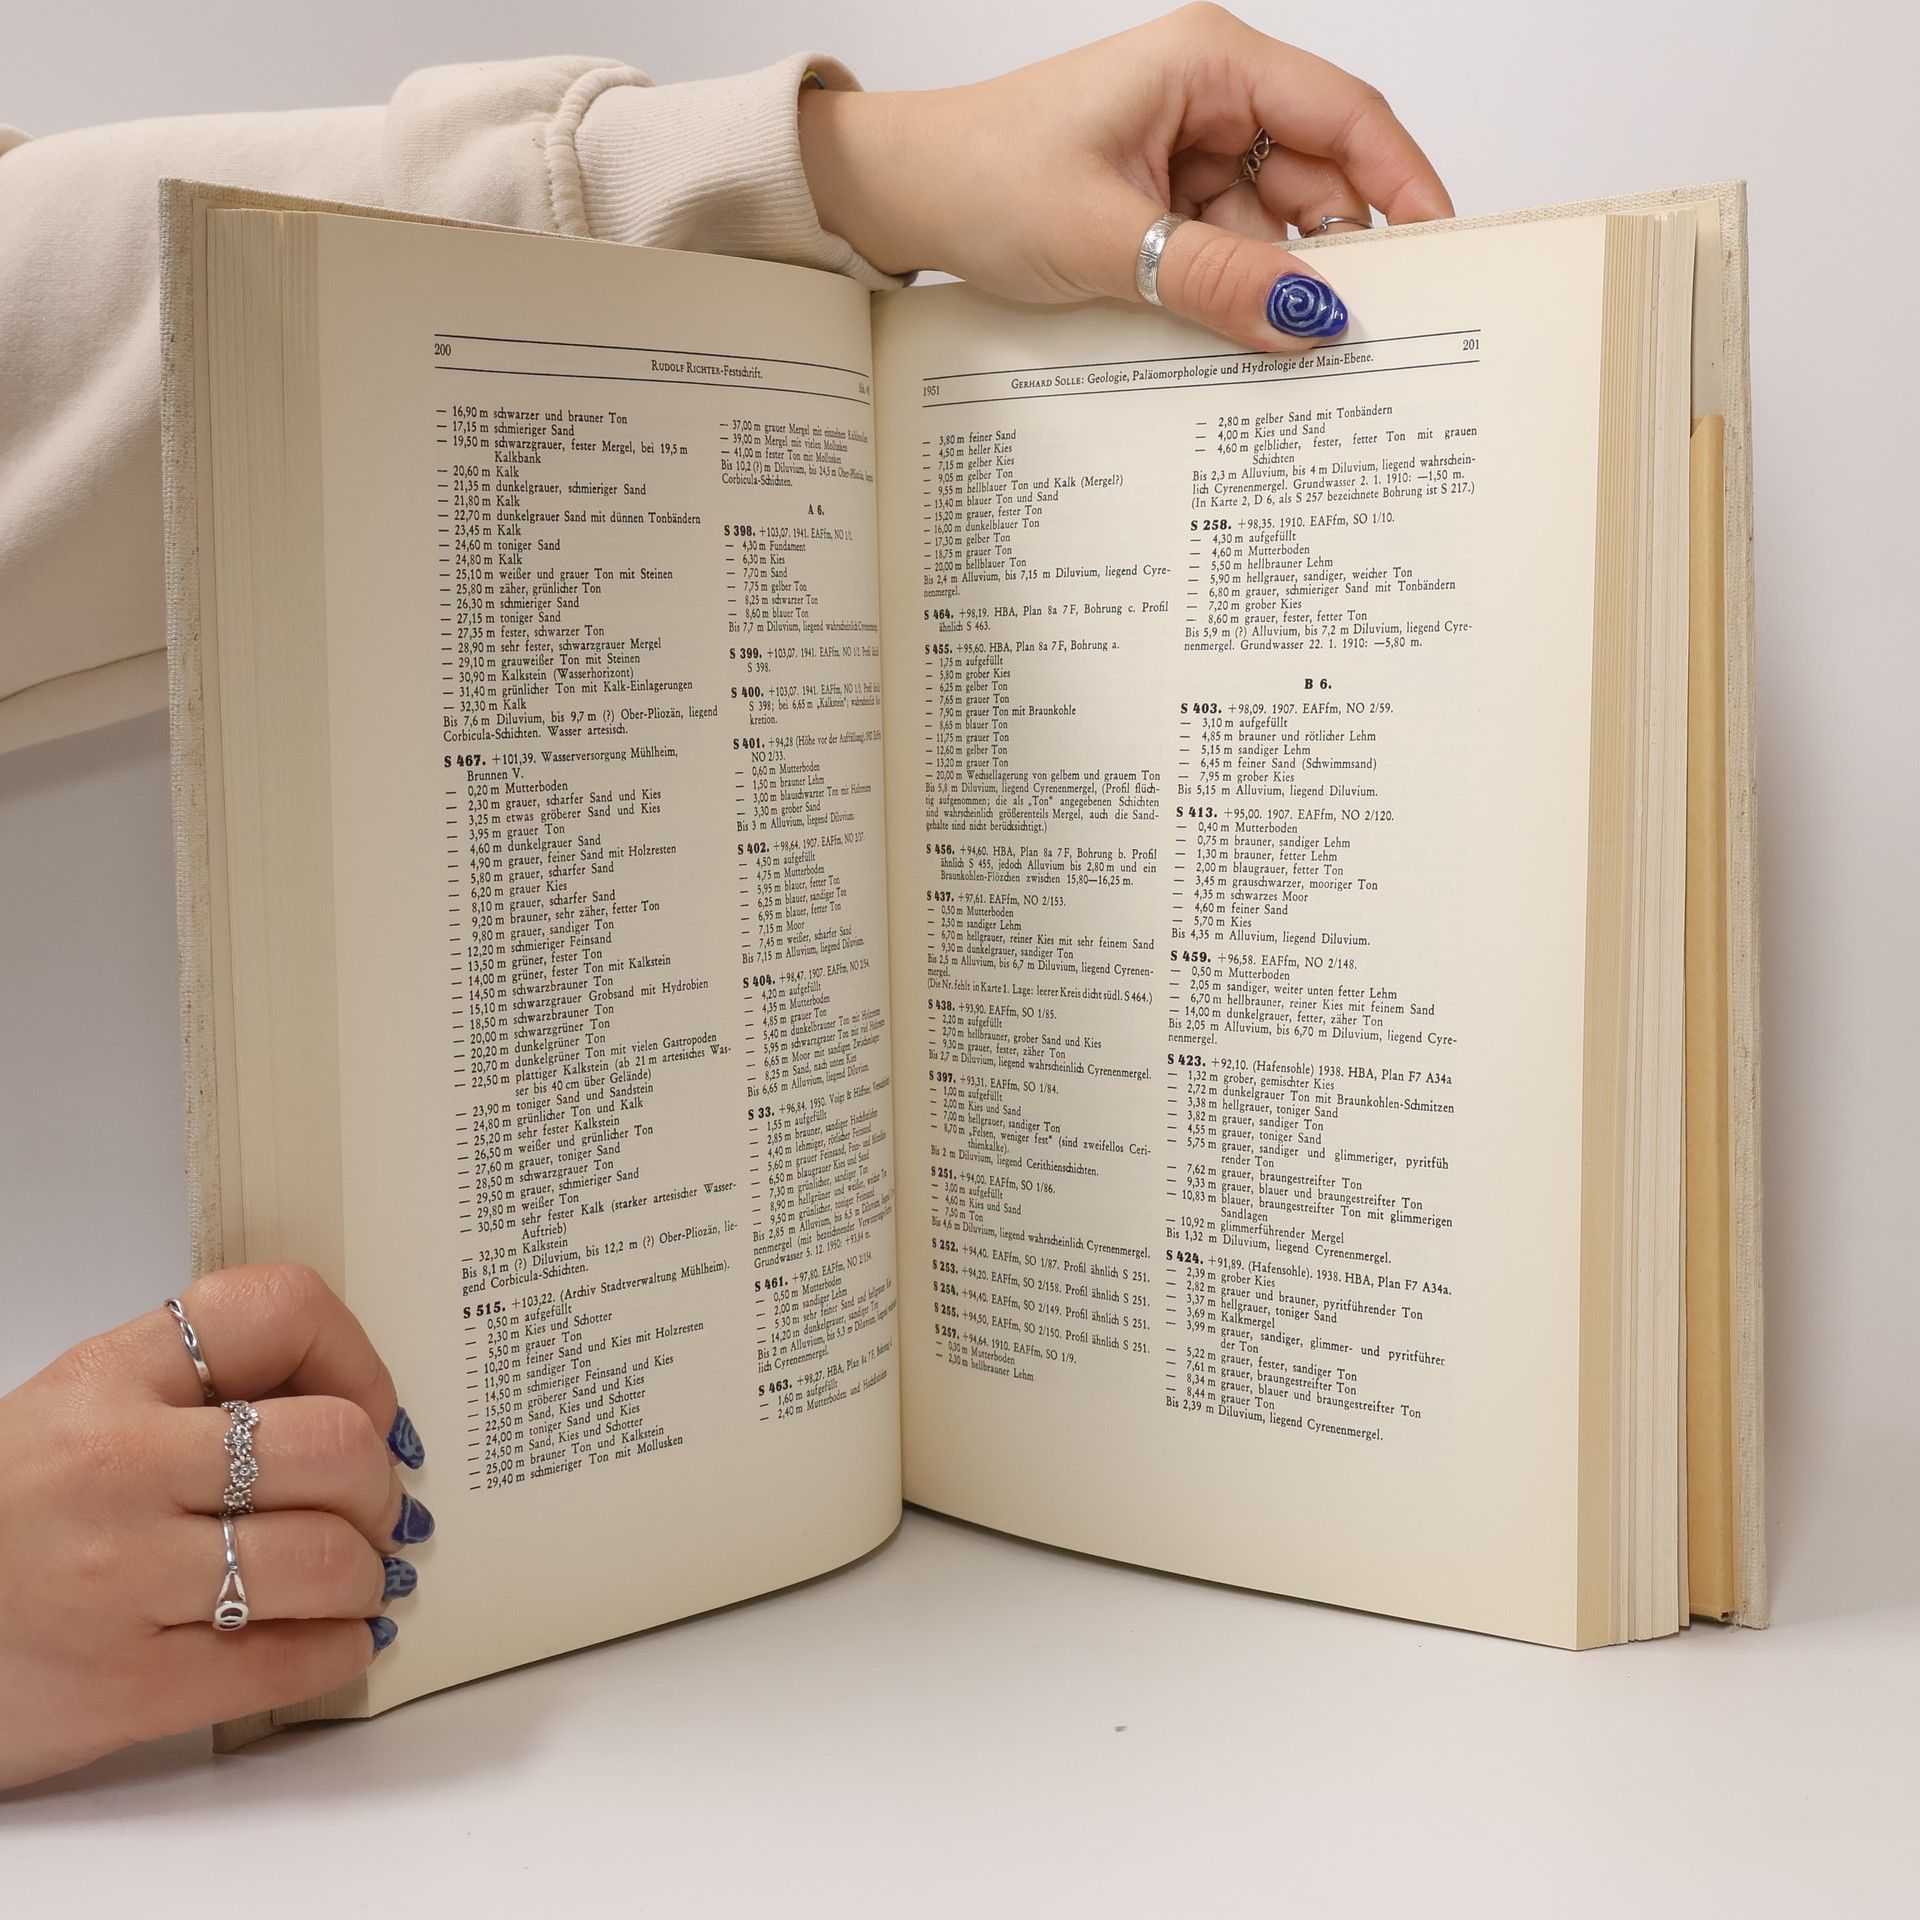 200
RUDOLF RICHTER-Festschrift.
— 16,90 m schwarzer und brauner Ton
— 17,15 m schmieriger Sand
— 19,50 m schwarzgrauer, fester Mergel, bei 19,5 m
Kalkbank
— 20,60 m Kalk
— 21,35 m dunkelgrauer, schmieriger Sand
— 21,80 m Kalk
— 22,70 m dunkelgrauer Sand mit dünnen Tonbändern
— 23,45 m Kalk
— 24,60 m toniger Sand
— 24,80 m Kalk
— 25,10 m weißer und grauer Ton mit Steinen
— 25,80 m zäher, grünlicher Ton
— 26,30 m schmieriger Sand
— 27,15 m toniger Sand
— 27,35 m fester, schwarzer Ton
— 28,90 m sehr fester, schwarzgrauer Mergel
— 29,10 m grauweißer Ton mit Steinen
— 30,90 m Kalkstein (Wasserhorizont)
— 31,40 m grünlicher Ton mit Kalk-Einlagerungen
— 32,30 m Kalk
Bis 7,6 m Diluvium, bis 9,7 m (?) Ober-Pliozän, liegend
Corbicula-Schichten. Wasser artesisch.
S 467. +101,39. Wasserversorgung Mühlheim,
Brunnen V.
— 0,20 m Mutterboden
— 2,30 m grauer, scharfer Sand und Kies
— 3,25 m etwas gröberer Sand und Kies
— 3,95 m grauer Ton
— 4,60 m dunkelgrauer Sand
— 4,90 m grauer, feiner Sand mit Holzresten
— 5,80 m grauer, scharfer Sand
— 6,20 m grauer Kies
— 8,10 m grauer, scharfer Sand
— 9,20 m brauner, sehr zäher, fetter Ton
— 9,80 m grauer, sandiger Ton
— 12,20 m schmieriger Feinsand
— 13,50 m grüner, fester Ton
— 14,00 m grüner, fester Ton mit Kalkstein
— 14,50 m schwarzbrauner Ton
— 15,10 m schwarzgrauer Grobsand mit Hydrobien
— 18,50 m schwarzbrauner Ton
— 20,00 m schwarzgrüner Ton
— 20,20 m dunkelgrüner Ton
— 20,70 m dunkelgrüner Ton mit vielen Gastropoden
— 22,50 m plattiger Kalkstein (ab 21 m artesisches Was-
ser bis 40 cm über Gelände)
— 23,90 m toniger Sand und Sandstein
— 24,80 m grünlicher Ton und Kalk
— 25,20 m sehr fester Kalkstein
— 26,50 m weißer und grünlicher Ton
— 27,60 m grauer, toniger Sand
— 28,50 m schwarzgrauer Ton
— 29,50 m grauer, schmieriger Sand
— 29,80 m weißer Ton
— 30,50 m sehr fester Kalk (starker artesischer Wasser-
Auftrieb)
— 32,30 m Kalkstein
Bis 8,1 m (?) Diluvium, bis 12,2 m (?) Ober-Pliozän, lie-
gend Corbicula-Schichten.
S 515. +103,22. (Archiv Stadtverwaltung Mühlheim).
— 0,50 m aufgefüllt
— 2,30 m Kies und Schotter
— 5,50 m grauer Ton
— 10,20 m feiner Sand und Kies mit Holzresten
— 11,90 m sandiger Ton
— 14,50 m schmieriger Feinsand und Kies
— 15,50 m gröberer Sand und Kies
— 22,50 m Sand, Kies und Schotter
— 24,00 m toniger Sand und Kies
— 24,50 m Sand, Kies und Schotter
— 25,00 m brauner Ton und Kalkstein
— 29,40 m schmieriger Ton mit Mollusken
— 37,00 m grauer Mergel mit einzelnen
— 39,00 m Mergel mit vielen Mollusken
— 41,00 m fester Ton mit Mollusken
Bis 10,2 (?) m Diluvium, bis 24,5 m Ober-Pliozän,
Corbicula-Schichten.
A 6.
S 398. +103,07. 1941. EAFfm, NO 1/1.
— 4,30 m Fundament
— 6,30 m Kies
— 7,70 m Sand
— 7,75 m gelber Ton
— 8,25 m schwarzer Ton
— 8,60 m blauer Ton
Bis 7,7 m Diluvium, liegend wahrscheinlich Cyrenenmergel.
S 399. +103,07. 1941. EAFfm, NO 1/2. Profil
S 398.
S 400. +103,07. 1941. EAFfm, NO 1/3. Profil
S 398; bei 6,65 m „Kalkstein“; wahrscheinlich
kretion.
S 401. +94,28 (Höhe vor der Auffüllung).
NO 2/33.
— 0,60 m Mutterboden
— 1,50 m brauner Lehm
— 3,00 m blauschwarzer Ton mit Holzresten
— 3,30 m grober Sand
Bis 3 m Alluvium, liegend Diluvium.
S 402. +98,64. 1907. EAFfm, NO 2/37.
— 4,50 m aufgefüllt
— 4,75 m Mutterboden
— 5,95 m blauer, fetter Ton
— 6,25 m blauer, sandiger Ton
— 6,95 m blauer, fetter Ton
— 7,15 m Moor
— 7,45 m weißer, scharfer Sand
Bis 7,15 m Alluvium, liegend Diluvium.
S 404. +98,47. 1907. EAFfm, NO 2/34.
— 4,20 m aufgefüllt
— 4,35 m Mutterboden
— 4,85 m grauer Ton
— 5,40 m dunkelbrauner Ton mit Holzresten
— 5,95 m schwarzgrauer Ton mit viel Holzresten
— 6,65 m Moor mit sandigen Zwischenlagen
— 8,25 m Sand, nach unten Kies
Bis 6,65 m Alluvium, liegend Diluvium.
S 33. +96,84. 1950. Voigt & Häffner,
— 1,55 m aufgefüllt
— 2,85 m brauner, sandiger Hochflutlehm
— 4,40 m lehmiger, rötlicher Feinsand
— 5,60 m grauer Feinsand, Fein- und
— 6,50 m blaugrauer Kies und Sand
— 7,30 m grünlicher, sandiger Ton
— 8,90 m hellgrüner und weißer, weicher Ton
— 9,50 m grünlicher, toniger Feinsand
Bis 2,85 m Alluvium, bis 6,5 m Diluvium,
nenmergel (mit bezeichnender
Grundwasser 5. 12. 1950: +93,84 m.
S 461. +97,80. EAFfm, NO 2/154.
— 0,50 m Mutterboden
— 2,00 m sandiger Lehm
— 5,30 m sehr feiner Sand und hellgrauer Kies
— 14,20 m dunkelgrauer, sandiger Ton
Bis 2 m Alluvium, bis 5,3 m Diluvium,
lich Cyrenenmergel.
S 463. +98,27. HBA, Plan 8a 7 F, Bohrung
— 1,60 m aufgefüllt
— 2,40 m Mutterboden und Hochflutlehm
1951
GERHARD SOLLE: Geologie, Paläomorphologie und Hydrologie der Main-Ebene.
201
— 3,80 m feiner Sand
— 4,50 m heller Kies
— 7,15 m gelber Kies
— 9,05 m gelber Ton
— 9,55 m hellblauer Ton und Kalk (Mergel?)
— 13,40 m blauer Ton und Sand
— 15,20 m grauer, fester Ton
— 16,00 m dunkelblauer Ton
— 17,30 m gelber Ton
— 18,75 m grauer Ton
— 20,00 m hellblauer Ton
Bis 2,4 m Alluvium, bis 7,15 m Diluvium, liegend Cyre-
nenmergel.
S 464. +98,19. HBA, Plan 8a 7 F, Bohrung c. Profil
ähnlich S 463.
S 455. +95,60. HBA, Plan 8a 7 F, Bohrung a.
— 1,75 m aufgefüllt
— 5,80 m grober Kies
— 6,25 m gelber Ton
— 7,65 m grauer Ton
— 7,90 m grauer Ton mit Braunkohle
— 8,65 m blauer Ton
— 11,75 m grauer Ton
— 12,60 m gelber Ton
— 13,20 m grauer Ton
— 20,00 m Wechsellagerung von gelbem und grauem Ton
Bis 5,8 m Diluvium, liegend Cyrenenmergel, (Profil flüch-
tig aufgenommen; die als „Ton“ angegebenen Schichten
sind wahrscheinlich größerenteils Mergel, auch die Sand-
gehalte sind nicht berücksichtigt.)
S 456. +94,60. HBA, Plan 8a 7 F, Bohrung b. Profil
ähnlich S 455, jedoch Alluvium bis 2,80 m und ein
Braunkohlen-Flözchen zwischen 15,80—16,25 m.
S 437. +97,61. EAFfm, NO 2/153.
— 0,50 m Mutterboden
— 2,50 m sandiger Lehm
— 6,70 m hellgrauer, reiner Kies mit sehr feinem Sand
— 9,30 m dunkelgrauer, sandiger Ton
Bis 2,5 m Alluvium, bis 6,7 m Diluvium, liegend Cyrenen-
mergel.
(Die Nr. fehlt in Karte 1. Lage: leerer Kreis dicht südl. S 464.)
S 438. +93,90. EAFfm, SO 1/85.
— 2,20 m aufgefüllt
— 2,70 m hellbrauner, grober Sand und Kies
— 9,30 m grauer, fester, zäher Ton
Bis 2,7 m Diluvium, liegend wahrscheinlich Cyrenenmergel.
S 397. +93,31. EAFfm, SO 1/84.
— 1,00 m aufgefüllt
— 2,00 m Kies und Sand
— 7,00 m hellgrauer, sandiger Ton
— 8,70 m „Felsen, weniger fest“ (sind zweifellos Ceri-
thienkalke).
Bis 2 m Diluvium, liegend Cerithienschichten.
S 251. +94,00. EAFfm, SO 1/86.
— 3,00 m aufgefüllt
— 4,60 m Kies und Sand
— 7,50 m Ton
Bis 4,6 m Diluvium, liegend wahrscheinlich Cyrenenmergel.
S 252. +94,40. EAFfm, SO 1/87. Profil ähnlich S 251.
S 253. +94,20. EAFfm, SO 2/158. Profil ähnlich S 251.
S 254. +94,40. EAFfm, SO 2/149. Profil ähnlich S 251.
S 255. +94,50. EAFfm, SO 2/150. Profil ähnlich S 251.
S 257. +94,64. 1910. EAFfm, SO 1/9.
— 0,30 m Mutterboden
— 2,30 m hellbrauner Lehm
— 2,80 m gelber Sand mit Tonbändern
— 4,00 m Kies und Sand
— 4,60 m gelblicher, fester, fetter Ton mit grauen
Schichten
Bis 2,3 m Alluvium, bis 4 m Diluvium, liegend wahrschein-
lich Cyrenenmergel. Grundwasser 2. 1. 1910: —1,50 m.
(In Karte 2, D 6, als S 257 bezeichnete Bohrung ist S 217.)
S 258. +98,35. 1910. EAFfm, SO 1/10.
— 4,30 m aufgefüllt
— 4,60 m Mutterboden
— 5,50 m hellbrauner Lehm
— 5,90 m hellgrauer, sandiger, weicher Ton
— 6,80 m grauer, schmieriger Sand mit Tonbändern
— 7,20 m grober Kies
— 8,60 m grauer, fester, fetter Ton
Bis 5,9 m (?) Alluvium, bis 7,2 m Diluvium, liegend Cyre-
nenmergel. Grundwasser 22. 1. 1910: —5,80 m.
B 6.
S 403. +98,09. 1907. EAFfm, NO 2/59.
— 3,10 m aufgefüllt
— 4,85 m brauner und rötlicher Lehm
— 5,15 m sandiger Lehm
— 6,45 m feiner Sand (Schwimmsand)
— 7,95 m grober Kies
Bis 5,15 m Alluvium, liegend Diluvium.
S 413. +95,00. 1907. EAFfm, NO 2/120.
— 0,40 m Mutterboden
— 0,75 m brauner, sandiger Lehm
— 1,30 m brauner, fetter Lehm
— 2,00 m blaugrauer, fetter Ton
— 3,45 m grauschwarzer, mooriger Ton
— 4,35 m schwarzes Moor
— 4,60 m feiner Sand
— 5,70 m Kies
Bis 4,35 m Alluvium, liegend Diluvium.
S 459. +96,58. EAFfm, NO 2/148.
— 0,50 m Mutterboden
— 2,05 m sandiger, weiter unten fetter Lehm
— 6,70 m hellbrauner, reiner Kies mit feinem Sand
— 14,00 m dunkelgrauer, fetter, zäher Ton
Bis 2,05 m Alluvium, bis 6,70 m Diluvium, liegend Cyre-
nenmergel.
S 423. +92,10. (Hafensohle) 1938. HBA, Plan F7 A34a
— 1,32 m grober, gemischter Kies
— 2,72 m dunkelgrauer Ton mit Braunkohlen-Schmitzen
— 3,38 m hellgrauer, toniger Sand
— 3,82 m grauer, sandiger Ton
— 4,55 m grauer, toniger Sand
— 5,75 m grauer, sandiger und glimmeriger, pyritfüh
render Ton
— 7,62 m grauer, braungestreifter Ton
— 9,33 m grauer, blauer und braungestreifter Ton
— 10,83 m blauer, braungestreifter Ton mit glimmerigen
Sandlagen
— 10,92 m glimmerführender Mergel
Bis 1,32 m Diluvium, liegend Cyrenenmergel.
S 424. +91,89. (Hafensohle). 1938. HBA, Plan F7 A34a.
— 2,39 m grober Kies
— 2,82 m grauer und brauner, pyritführender Ton
— 3,37 m hellgrauer, toniger Sand
— 3,69 m Kalkmergel
— 3,99 m grauer, sandiger, glimmer- und pyritführer
der Ton
— 5,22 m grauer, fester, sandiger Ton
— 7,61 m grauer, braungestreifter Ton
— 8,34 m grauer, blauer und braungestreifter Ton
— 8,44 m grauer Ton
Bis 2,39 m Diluvium, liegend Cyrenenmergel.